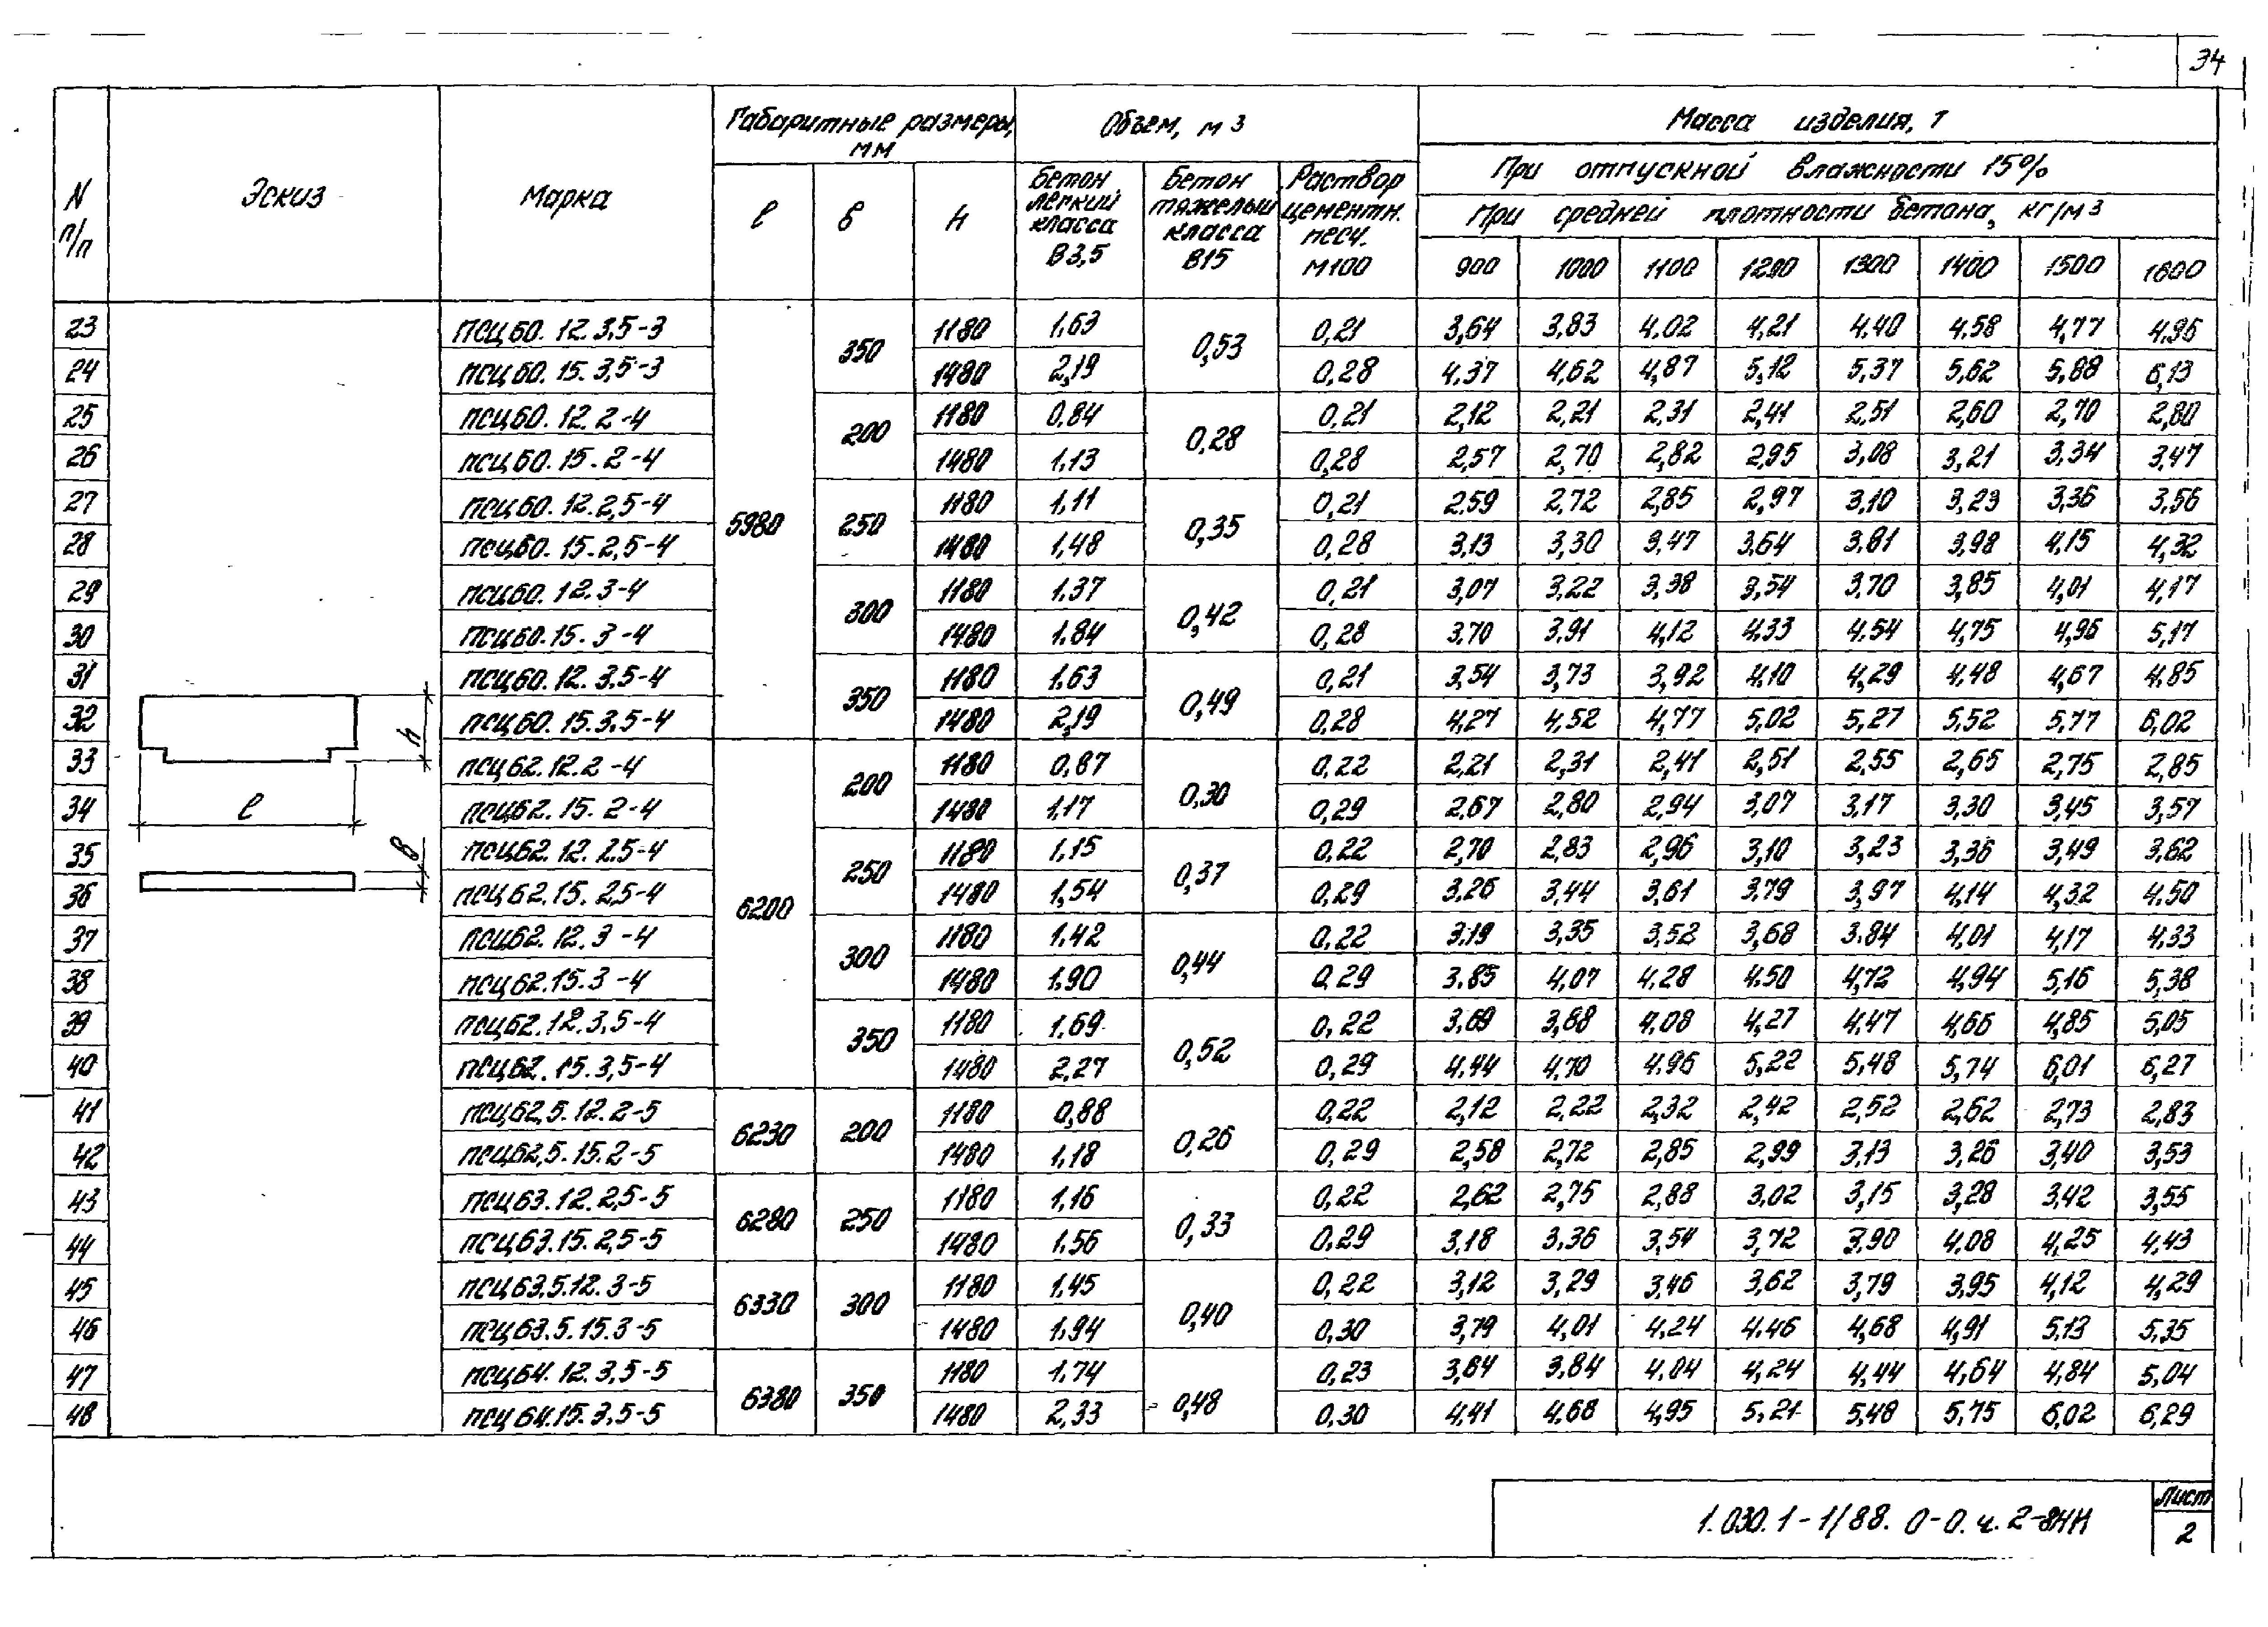 34
N п/п Эскиз Марка Габаритные размеры, мм Объем, м3 Масса изделия, т
При отпускной влажности 15%
При средней плотности бетона, кг/м3
l б h Бетон легкий класса В3,5 Бетон тяжелый класса В15 Раствор цементн. песч. М100 900 1000 1100 1200 1300 1400 1500 1600
23 ПСЦ60.12.3,5-3 5980 350 1180 1,63 0,53 0,21 3,64 3,83 4.02 4,21 4.40 4.58 4,77 4.95
24 ПСЦ60.15.3,5-3 1480 2,19 0,28 4.37 4,62 4,87 5,12 5,37 5,62 5,88 6,13
25 ПСЦ60.12.2-4 200 1180 0,84 0,28 0,21 2,12 2,21 2,31 2,41 2,51 2,60 2,70 2,80
26 ПСЦ60.15.2-4 1480 1,13 0,28 2,57 2,70 2,82 2,95 3,08 3,21 3,34 3,47
27 ПСЦ60.12.2,5-4 250 1180 1,11 0,35 0,21 2.59 2,72 2,85 2,97 3,10 3,23 3,36 3,56
28 ПСЦ60.15.2,5-4 1480 1,48 0,28 3,13 3,30 3,47 3,64 3,81 3,98 4,15 4,32
29 ПСЦ60.12.3-4 300 1180 1.37 0,42 0,21 3,07 3,22 3,38 3,54 3,70 3,85 4,01 4,17
30 ПСЦ60.15.3-4 1480 1.84 0,28 3,70 3,91 4,12 4.33 4.54 4,75 4,96 5,17
31 ПСЦ60.12.3,5-4 350 1180 1,63 0,49 0,21 3,54 3,73 3,92 4.10 4,29 4.48 4,67 4.85
32 ПСЦ60.15.3,5-4 1480 2,19 0,28 4,27 4,52 4,77 5,02 5,27 5,52 5,77 6,02
33 ПСЦ62.12.2-4 6200 200 1180 0,87 0,30 0,22 2,21 2,31 2,41 2,51 2.55 2,65 2,75 2,85
34 ПСЦ62.15.2-4 1480 1,17 0,29 2,67 2,80 2,94 3,07 3,17 3,30 3,45 3,57
35 ПСЦ62.12.2,5-4 250 1180 1,15 0,37 0,22 2,70 2,83 2,96 3,10 3,23 3,36 3,49 3,62
36 ПСЦ62.15.2,5-4 1480 1,54 0,29 3,26 3,44 3,61 3,79 3,97 4,14 4,32 4.50
37 ПСЦ62.12.3-4 300 1180 1.42 0,44 0,22 3,19 3,35 3,52 3,68 3.84 4,01 4,17 4.33
38 ПСЦ62.15.3-4 1480 1.90 0,29 3.85 4,07 4.28 4.50 4,72 4,94 5,16 5,38
39 ПСЦ62.12.3,5-4 350 1180 1,69 0,52 0,22 3,69 3,88 4.08 4,27 4.47 4,66 4,85 5,05
40 ПСЦ62.15.3,5-4 1480 2,27 0,29 4.44 4.70 4.96 5,22 5,48 5,74 6,01 6,27
41 ПСЦ62,5.12.2-5 6230 200 1180 0,88 0,26 0,22 2,12 2,22 2,32 2,42 2,52 2,62 2,73 2,83
42 ПСЦ62,5.15.2-5 1480 1,18 0,29 2,58 2,72 2,85 2,99 3,13 3,26 3,40 3,53
43 ПСЦ63.12.2,5-5 6280 250 1180 1,16 0,33 0,22 2,62 2,75 2,88 3.02 3,15 3,28 3,42 3,55
44 ПСЦ63.15.2,5-5 1480 1,56 0,29 3,18 3,36 3,54 3,72 3,90 4.08 4,25 4,43
45 ПСЦ63,5.12.3-5 6330 300 1180 1.45 0,40 0,22 3,12 3,29 3,46 3,62 3,79 3,95 4,12 4,29
46 ПСЦ63.5.15.3-5 1480 1,94 0,30 3,79 4,01 4,24 4.46 4,68 4,91 5,13 5,35
47 ПСЦ64.12.3,5-5 6380 350 1180 1.74 0,48 0,23 3,64 3.84 4.04 4,24 4,44 4,64 4,84 5,04
48 ПСЦ64.15.3,5-5 1480 2,33 0,30 4,41 4.68 4,95 5,21 5,48 5,75 6,02 6,29
h
l
В
1.030.1-1/88. 0-0.ч.2-8НИ
Лист
2